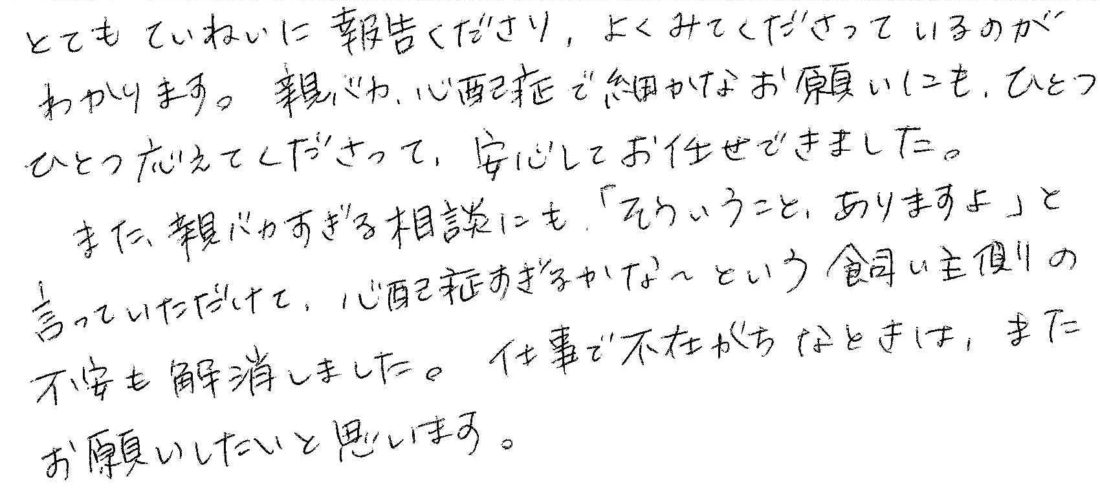 とてもていねいに報告くださり、よくみてくださっているのが
わかります。親バカ、心配症で細かなお願いにも、ひとつ
ひとつ応えてくださって、安心してお任せできました。
また、親バカすぎる相談にも「そういうこと、ありますよ」と
言っていただけて、心配症すぎるかな～という飼い主側の
不安も解消しました。仕事で不在がちなときは、また
お願いしたいと思います。